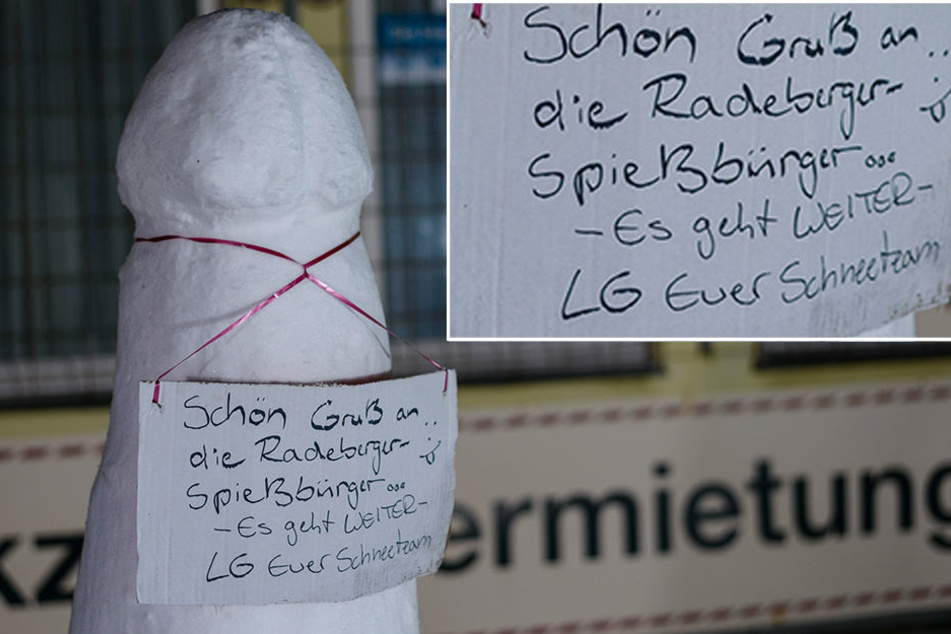 Schön Gruß an..
die Radeberger-
Spießbürger...
-Es geht WEITER-
LG Euer Schneeteam
Schön Gruß an..
die Radeberger-
Spießbürger...
-Es geht WEITER-
LG Euer Schneeteam
kz ermietung